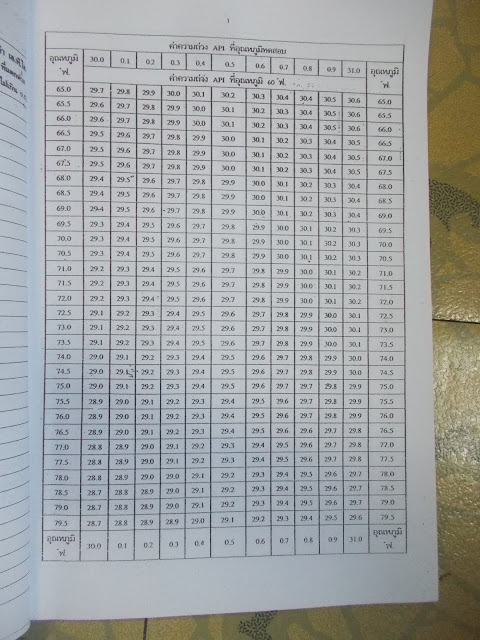 1
ค่าความถ่วง API ที่อุณหภูมิทดสอบ
อุณหภูมิ 30.0 0.1 0.2 0.3 0.4 0.5 0.6 0.7 0.8 0.9 31.0 อุณหภูมิ
°ฟ. ค่าความถ่วง API ที่อุณหภูมิ 60 °ฟ. °ฟ.
65.0 29.7 29.8 29.9 30.0 30.1 30.2 30.3 30.4 30.4 30.5 30.6 65.0
65.5 29.6 29.7 29.8 29.9 30.0 30.1 30.2 30.3 30.4 30.5 30.6 65.5
66.0 29.6 29.7 29.8 29.9 30.0 30.1 30.2 30.3 30.4 30.5 30.6 66.0
66.5 29.5 29.6 29.7 29.8 29.9 30.0 30.1 30.2 30.3 30.4 30.5 66.5
67.0 29.5 29.6 29.7 29.8 29.9 30.0 30.1 30.2 30.3 30.4 30.5 67.0
67.5 29.5 29.6 29.7 29.8 29.9 30.0 30.1 30.2 30.3 30.4 30.5 67.5
68.0 29.4 29.5 29.6 29.7 29.8 29.9 30.0 30.1 30.2 30.3 30.4 68.0
68.5 29.4 29.5 29.6 29.7 29.8 29.9 30.0 30.1 30.2 30.3 30.4 68.5
69.0 29.4 29.5 29.6 29.7 29.8 29.9 30.0 30.1 30.2 30.3 30.4 69.0
69.5 29.3 29.4 29.5 29.6 29.7 29.8 29.9 30.0 30.1 30.2 30.3 69.5
70.0 29.3 29.4 29.5 29.6 29.7 29.8 29.9 30.0 30.1 30.2 30.3 70.0
70.5 29.3 29.4 29.5 29.6 29.7 29.8 29.9 30.0 30.1 30.2 30.3 70.5
71.0 29.2 29.3 29.4 29.5 29.6 29.7 29.8 29.9 30.0 30.1 30.2 71.0
71.5 29.2 29.3 29.4 29.5 29.6 29.7 29.8 29.9 30.0 30.1 30.2 71.5
72.0 29.2 29.3 29.4 29.5 29.6 29.7 29.8 29.9 30.0 30.1 30.2 72.0
72.5 29.1 29.2 29.3 29.4 29.5 29.6 29.7 29.8 29.9 30.0 30.1 72.5
73.0 29.1 29.2 29.3 29.4 29.5 29.6 29.7 29.8 29.9 30.0 30.1 73.0
73.5 29.1 29.2 29.3 29.4 29.5 29.6 29.7 29.8 29.9 30.0 30.1 73.5
74.0 29.0 29.1 29.2 29.3 29.4 29.5 29.6 29.7 29.8 29.9 30.0 74.0
74.5 29.0 29.1 29.2 29.3 29.4 29.5 29.6 29.7 29.8 29.9 30.0 74.5
75.0 29.0 29.1 29.2 29.3 29.4 29.5 29.6 29.7 29.7 29.8 29.9 75.0
75.5 28.9 29.0 29.1 29.2 29.3 29.4 29.5 29.6 29.7 29.8 29.9 75.5
76.0 28.9 29.0 29.1 29.2 29.3 29.4 29.5 29.6 29.7 29.8 29.9 76.0
76.5 28.9 29.0 29.1 29.2 29.3 29.4 29.5 29.6 29.6 29.7 29.8 76.5
77.0 28.8 28.9 29.0 29.1 29.2 29.3 29.4 29.5 29.6 29.7 29.8 77.0
77.5 28.8 28.9 29.0 29.1 29.2 29.3 29.4 29.5 29.6 29.7 29.8 77.5
78.0 28.8 28.9 28.9 29.0 29.1 29.2 29.3 29.4 29.5 29.6 29.7 78.0
78.5 28.7 28.8 28.9 29.0 29.1 29.2 29.3 29.4 29.5 29.6 29.7 78.5
79.0 28.7 28.8 28.9 29.0 29.1 29.2 29.3 29.4 29.5 29.6 29.7 79.0
79.5 28.7 28.8 28.8 28.9 29.0 29.1 29.2 29.3 29.4 29.5 29.6 79.5
อุณหภูมิ 30.0 0.1 0.2 0.3 0.4 0.5 0.6 0.7 0.8 0.9 31.0 อุณหภูมิ
°ฟ. °ฟ.